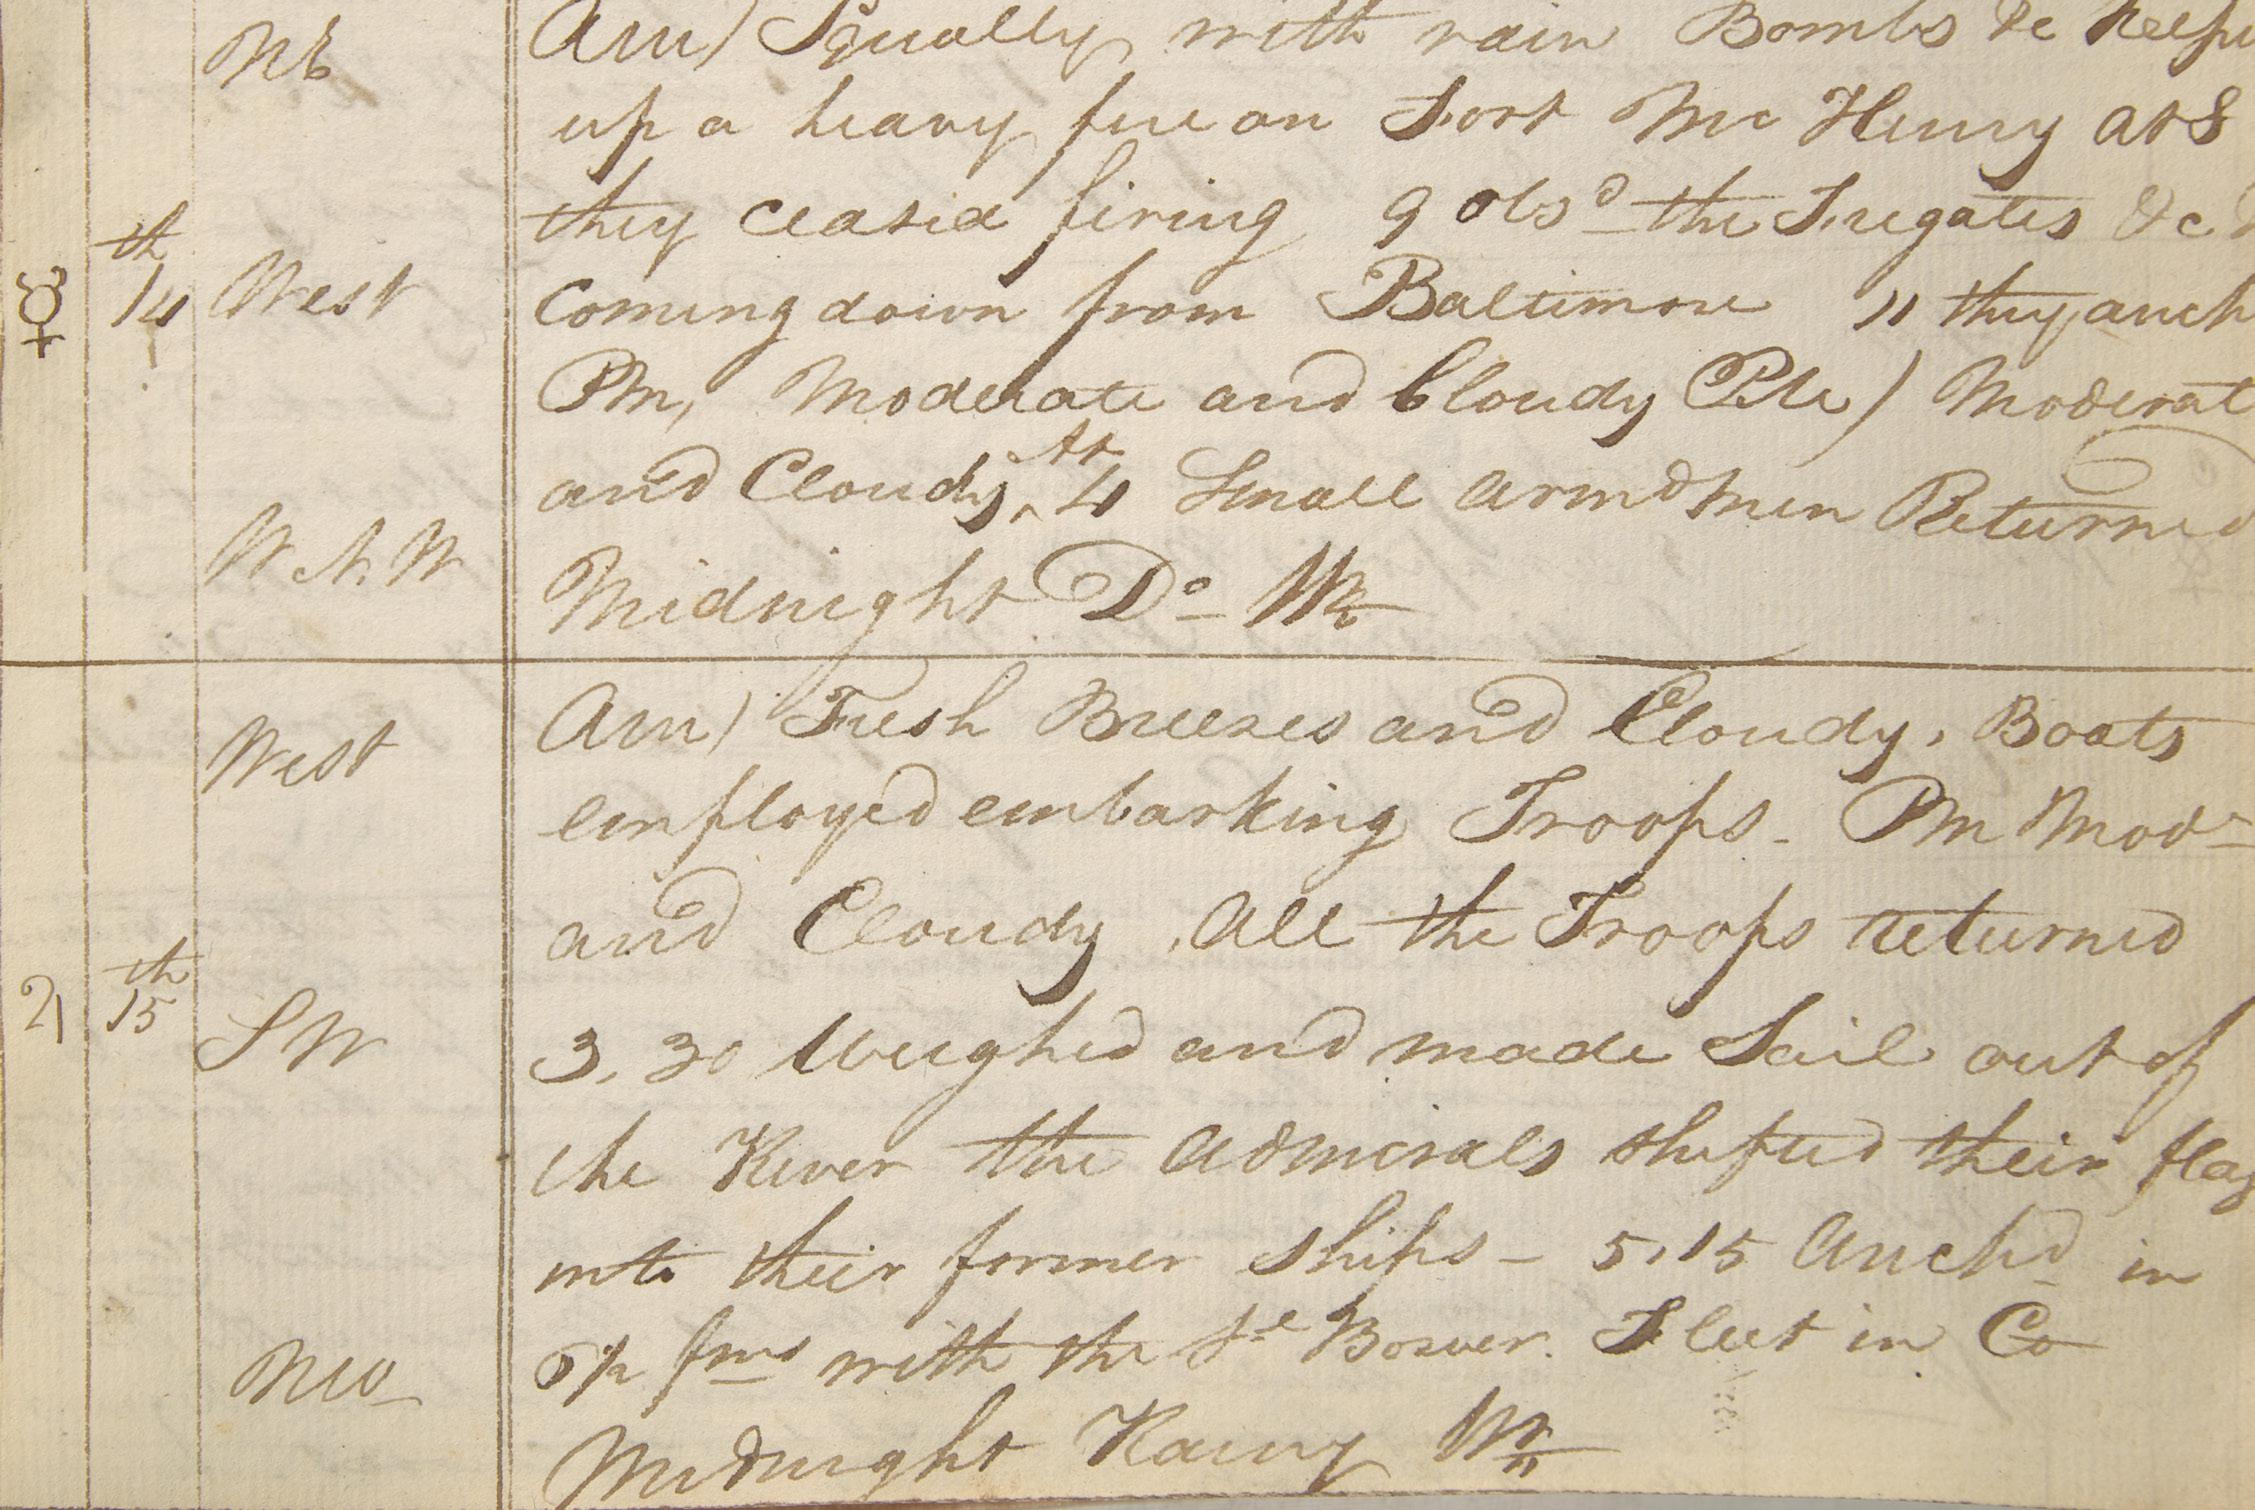 NE
Am) Squally with rain Bombs &c keepi
up a heavy fire on Fort Mc Henry at 8
they ceased firing 9 obsd the Fregates &c
☿ 14th West
coming down from Baltimore 11 they anch
Pm, Moderate and Cloudy Moderat
and Cloudy, At 4 Small armd men Returned
W.N.W
Midnight Do
West
Am) Fresh Breezes and Cloudy, Boats
employed embarking Troops - Pm Modr
and Cloudy, All the Troops returned
♃ 15th SW
3.30 Weighed and made Sail out of
the River the Admirals shifted their flag
into their former Ships - 5,15 Anchd in
fms with the Bower. Fleet in Co
Midnight Rainy